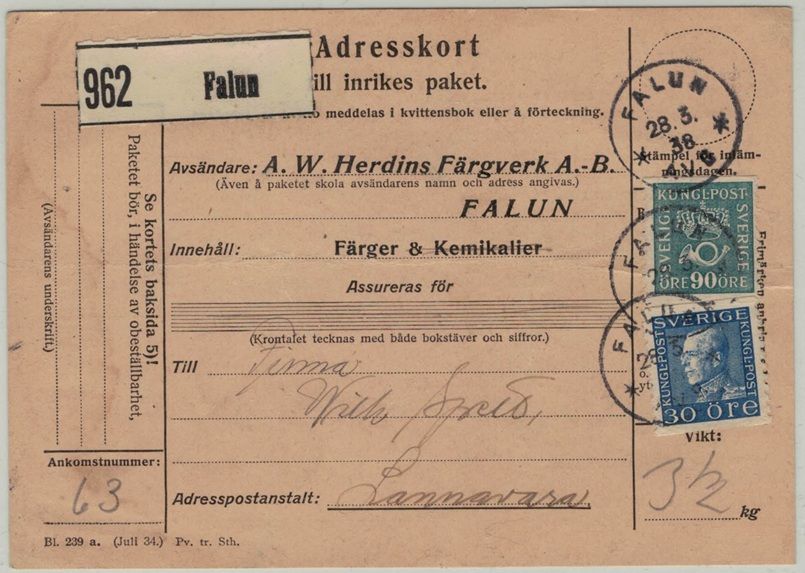 962 Falun
Adresskort
ill inrikes paket.
meddelas i kvittensbok eller å förteckning.
Avsändare: A. W. Herdins Färgverk A.-B.
(Även å paketet skola avsändarens namn och adress angivas.)
FALUN
Innehåll: Färger & Kemikalier
Assureras för
(Krontalet tecknas med både bokstäver och siffror.)
Till Firma
Wilh
Adresspostanstalt: Lannavara
Se kortets baksida 5)!
Paketet bör, i händelse av obeställbarhet,
(Avsändarens underskrift.)
Ankomstnummer:
63
Bl. 239 a. (Juli 34.) Pv. tr. Sth.
FALUN
28. 3.
38
* AVG *
Stämpel för inläm-
ningsdagen.
KUNGL. POST
SVERIGE
SVERIGE
ÖRE 90 ÖRE
FALUN
FALUN
28. 3.
SVERIGE
KUNGL. POST
KUNGL. POST
30 ÖRE
Vikt:
3 1/2
kg